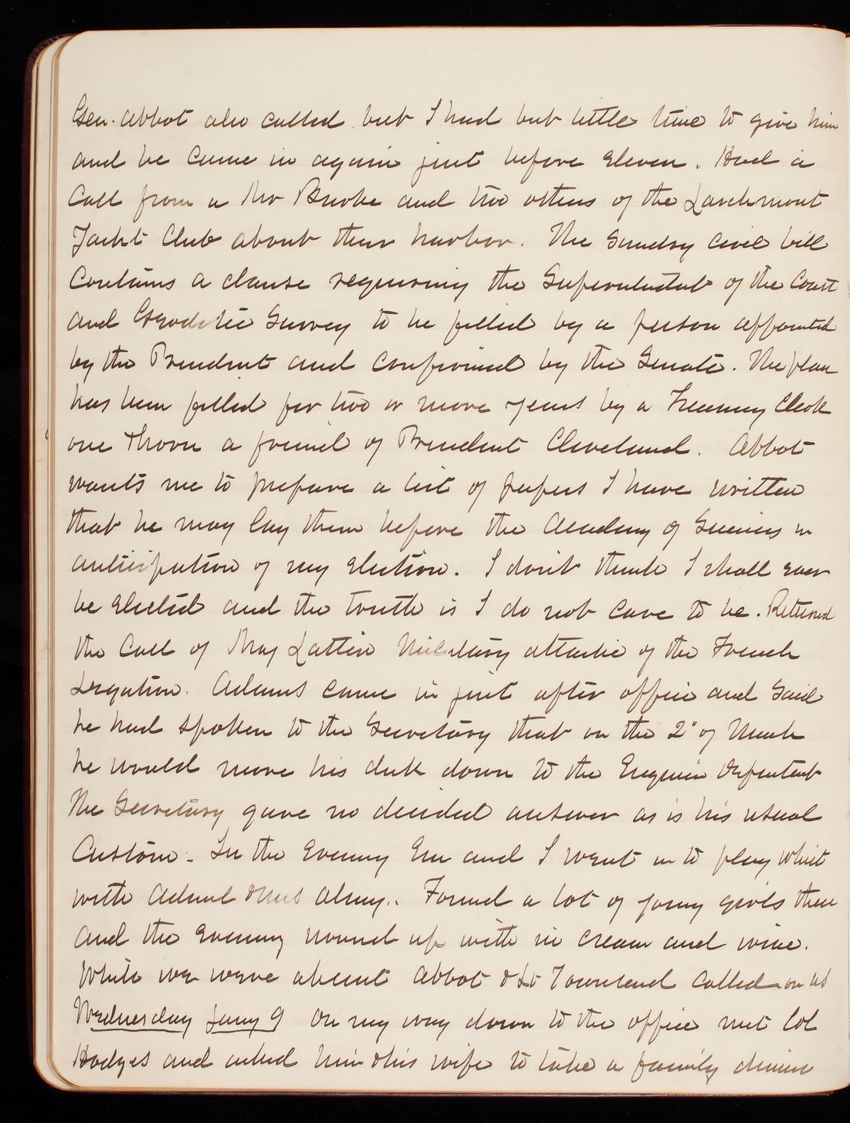 Gen. Abbot also called but I had but little time to give him
and he came in again just before eleven. Had a
Call from a Mr Burke and two others of the Larchmont
Yacht Club about their harbor. The Sundry Civil bill
Contains a clause requiring the Superintendent of the Coast
and Geodetic Survey to be filled by a person appointed
by the President and confirmed by the Senate. The place
has been filled for two or more years by a Treasury Clerk
one Thorn a friend of President Cleveland. Abbot
wants me to prepare a list of papers I have written
that he may lay them before the Academy of Sciences in
anticipation of my election. I don't think I shall ever
be elected and the truth is I do not care to be. Returned
the Call of Maj Lottin Military attache of the French
Legation. Adams came in just after office and said
he had spoken to the Secretary that on the 2" of March
he would move his desk down to the Engineer Department
The Secretary gave no decided answer as is his usual
Custom. In the Evening Em and I went in to play Whist
with Adml & Mrs Almy. Found a lot of young girls there
and the Evening wound up with ice cream and wine.
While we were absent Abbot & Lt Townsend called on us
Wednesday Jany 9 On my way down to the office met Col
Hodges and asked him & his wife to take a family dinner